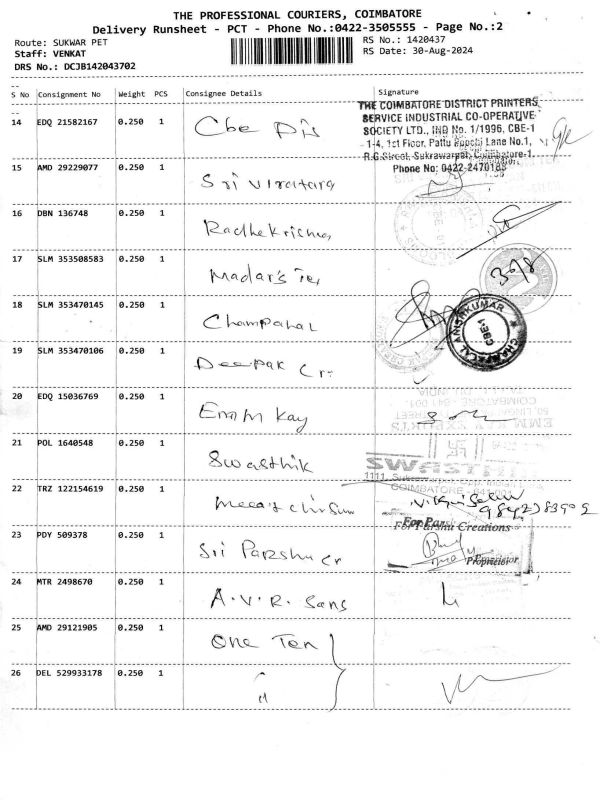 THE PROFESSIONAL COURIERS, COIMBATORE
Delivery Runsheet - PCT - Phone No.:0422-3505555 - Page No.:2
Route: SUKWAR PET RS No.: 1420437
Staff: VENKAT RS Date: 30-Aug-2024
DRS No.: DCJB142043702
S No Consignment No Weight PCS Consignee Details Signature
THE COIMBATORE DISTRICT PRINTERS
SERVICE INDUSTRIAL CO-OPERATIVE
SOCIETY LTD., IND No. 1/1996, CBE-1
1-4, 1st Floor, Pattu Noochi Lane No.1,
R.G. Street, Sukrawarpet, Coimbatore-1
Phone No: 0422-2470183
14 EDQ 21582167 0.250 1 Cbe Dis
15 AMD 29229077 0.250 1 Sri Viratara
16 DBN 136748 0.250 1 Radhekrishna
17 SLM 353508583 0.250 1 Madar's Tex 398
18 SLM 353470145 0.250 1 Champalal
CHAMPALAL ANISHKUMAR
CBE-1
19 SLM 353470106 0.250 1 Deepak Cr
20 EDQ 15036769 0.250 1 Emm Kay
COIMBATORE - 641 001.
INDIA
EMM KAY EXPORTS
21 POL 1640548 0.250 1 Swasthik
SWASTHIK
1111, Sukrawarpet
COIMBATORE
22 TRZ 122154619 0.250 1
23 PDY 509378 0.250 1 Sri Parshu cr
For Parshu Creations
Proprietor
24 MTR 2498670 0.250 1 A.V.R. Sans
25 AMD 29121905 0.250 1 One Ten
26 DEL 529933178 0.250 1 "